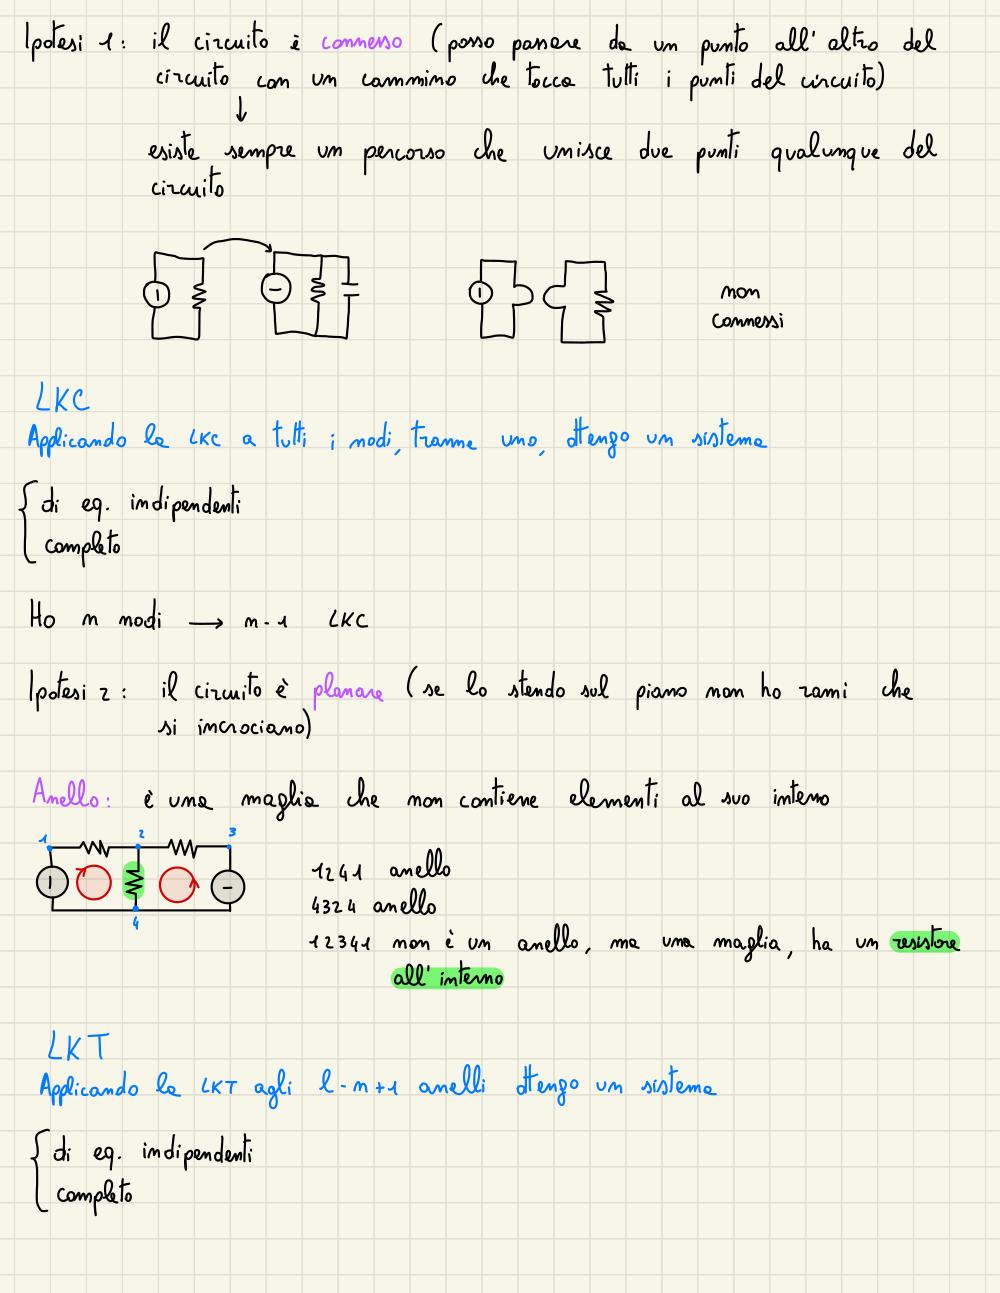 Ipotesi 1: il circuito è connesso (posso passare da un punto all'altro del
circuito con un cammino che tocca tutti i punti del circuito)
↓
esiste sempre un percorso che unisce due punti qualunque del
circuito
non
connessi
LKC
Applicando la LKC a tutti i nodi, tranne uno, ottengo un sistema
{ di eq. indipendenti
completo
Ho n nodi → n-1 LKC
Ipotesi 2: il circuito è planare (se lo stendo sul piano non ho rami che
si incrociano)
Anello: è una maglia che non contiene elementi al suo interno
1 2 3
4
1241 anello
4324 anello
12341 non è un anello, ma una maglia, ha un resistore
all'interno
LKT
Applicando la LKT agli l-n+1 anelli ottengo un sistema
{ di eq. indipendenti
completo